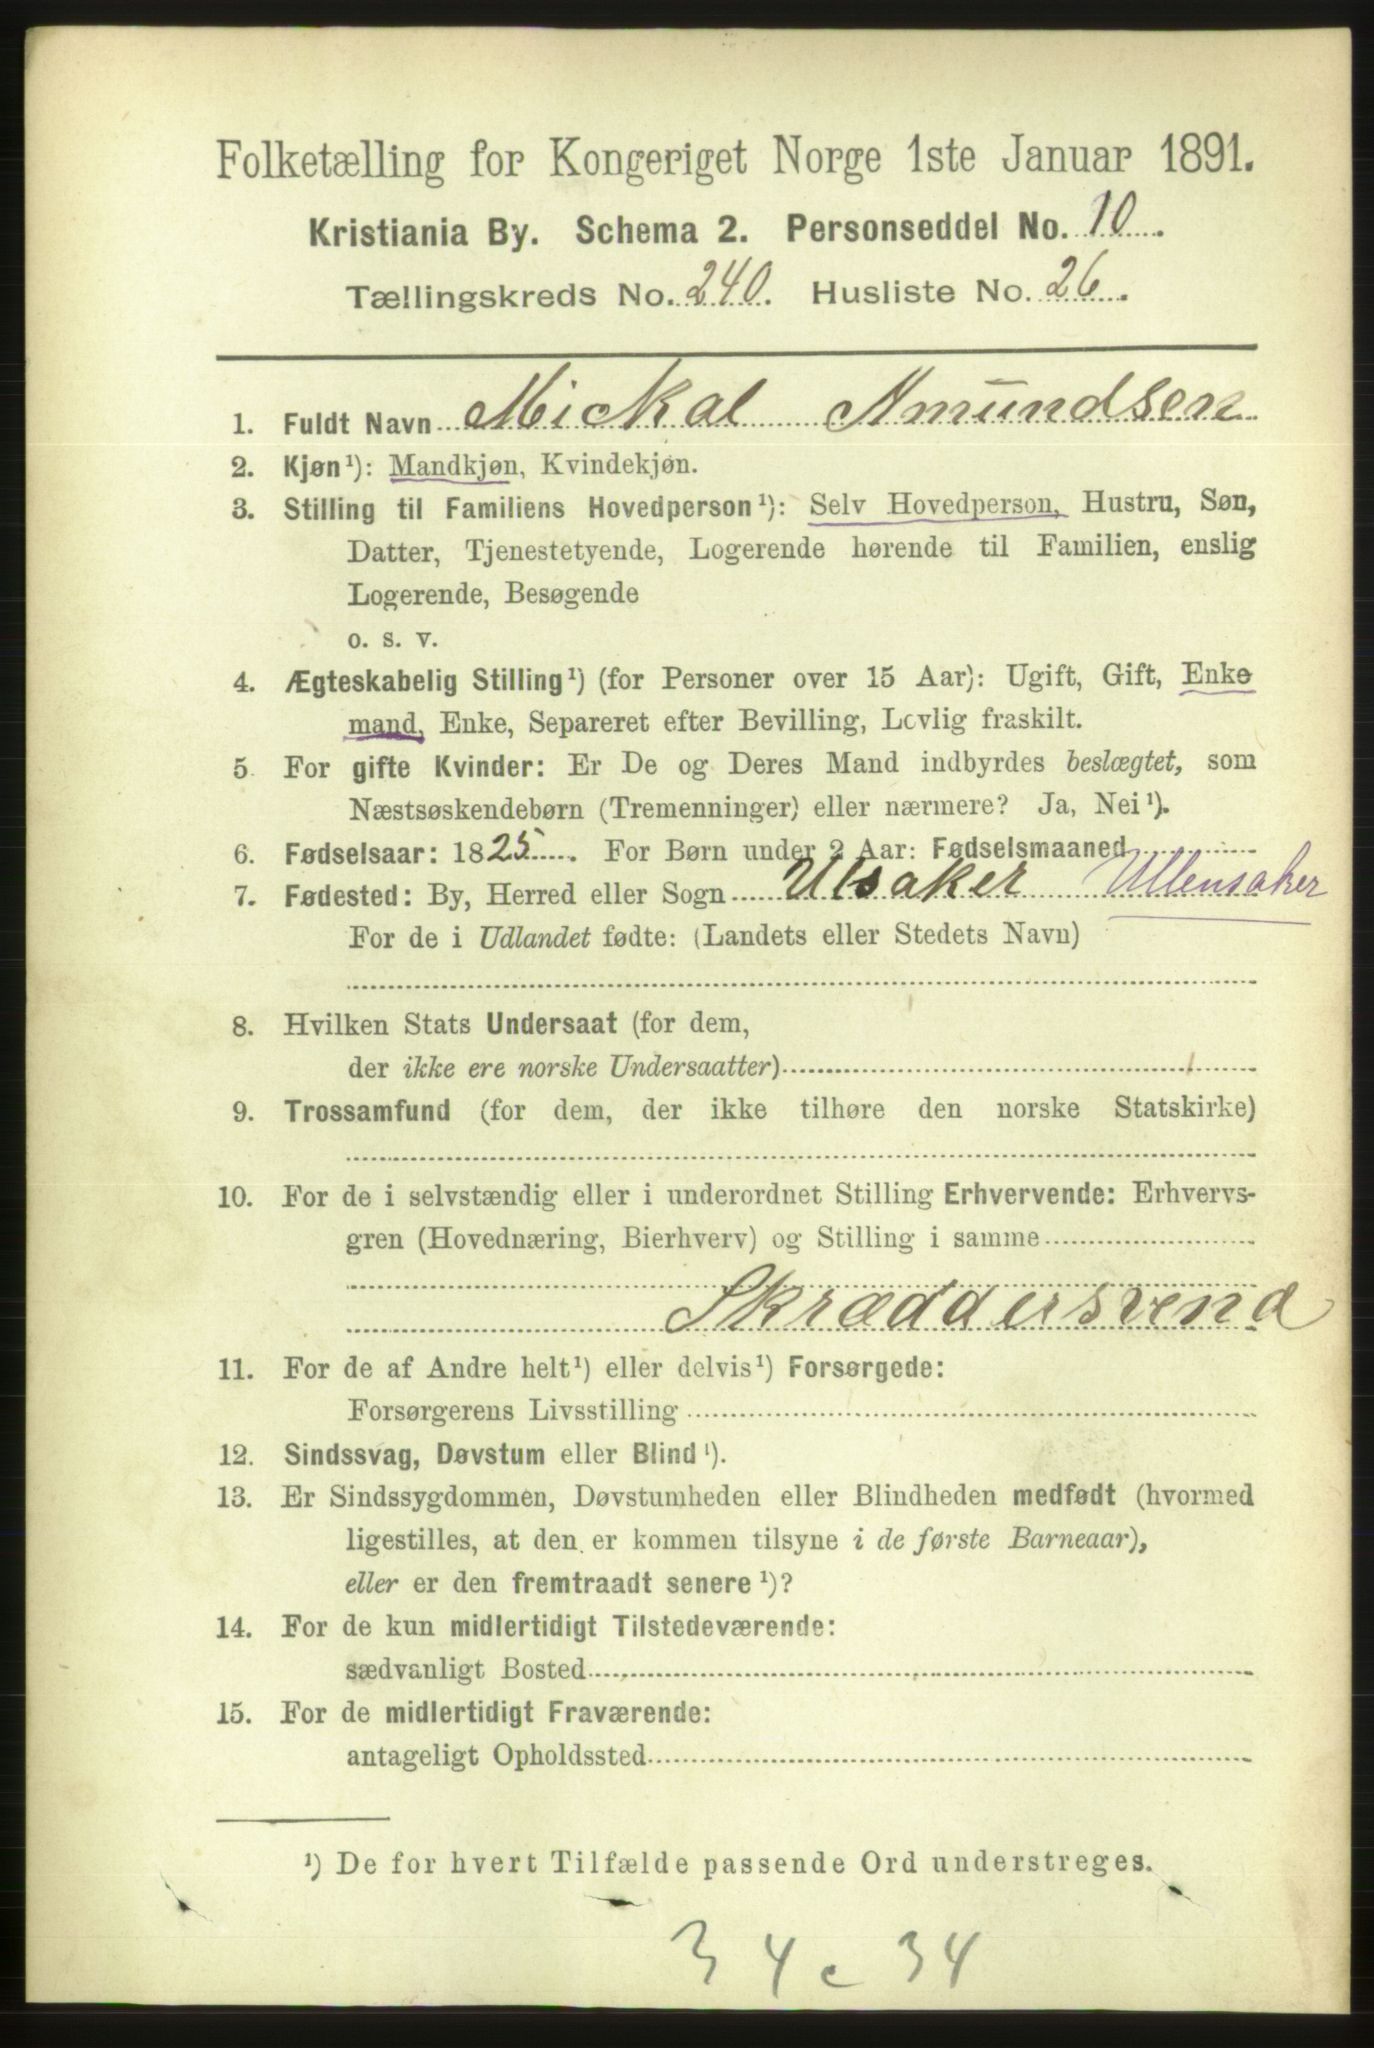 Folketælling for Kongeriget Norge 1ste Januar 1891.
Kristiania By. Schema 2. Personseddel No. 10.
Tællingskreds No. 240. Husliste No. 26.
1. Fuldt Navn Mickal Amundsen
2. Kjøn¹): Mandkjøn, Kvindekjøn.
3. Stilling til Familiens Hovedperson¹): Selv Hovedperson, Hustru, Søn,
Datter, Tjenestetyende, Logerende hørende til Familien, enslig
Logerende, Besøgende
o. s. v.
4. Ægteskabelig Stilling¹) (for Personer over 15 Aar): Ugift, Gift, Enke
mand, Enke, Separeret efter Bevilling, Lovlig fraskilt.
5. For gifte Kvinder: Er De og Deres Mand indbyrdes beslægtet, som
Næstsøskendebørn (Tremenninger) eller nærmere? Ja, Nei¹).
6. Fødselsaar: 1825. For Børn under 2 Aar: Fødselsmaaned
7. Fødested: By, Herred eller Sogn Ulsaker Ullensaker
For de i Udlandet fødte: (Landets eller Stedets Navn)
8. Hvilken Stats Undersaat (for dem,
der ikke ere norske Undersaatter)
9. Trossamfund (for dem, der ikke tilhøre den norske Statskirke)
10. For de i selvstændig eller i underordnet Stilling Erhvervende: Erhvervs-
gren (Hovednæring, Bierhverv) og Stilling i samme
Skræddersvend
11. For de af Andre helt¹) eller delvis¹) Forsørgede:
Forsørgerens Livsstilling
12. Sindssvag, Døvstum eller Blind¹).
13. Er Sindssygdommen, Døvstumheden eller Blindheden medfødt (hvormed
ligestilles, at den er kommen tilsyne i de første Barneaar),
eller er den fremtraadt senere¹)?
14. For de kun midlertidigt Tilstedeværende:
sædvanligt Bosted
15. For de midlertidigt Fraværende:
antageligt Opholdssted
¹) De for hvert Tilfælde passende Ord understreges.
34c 34